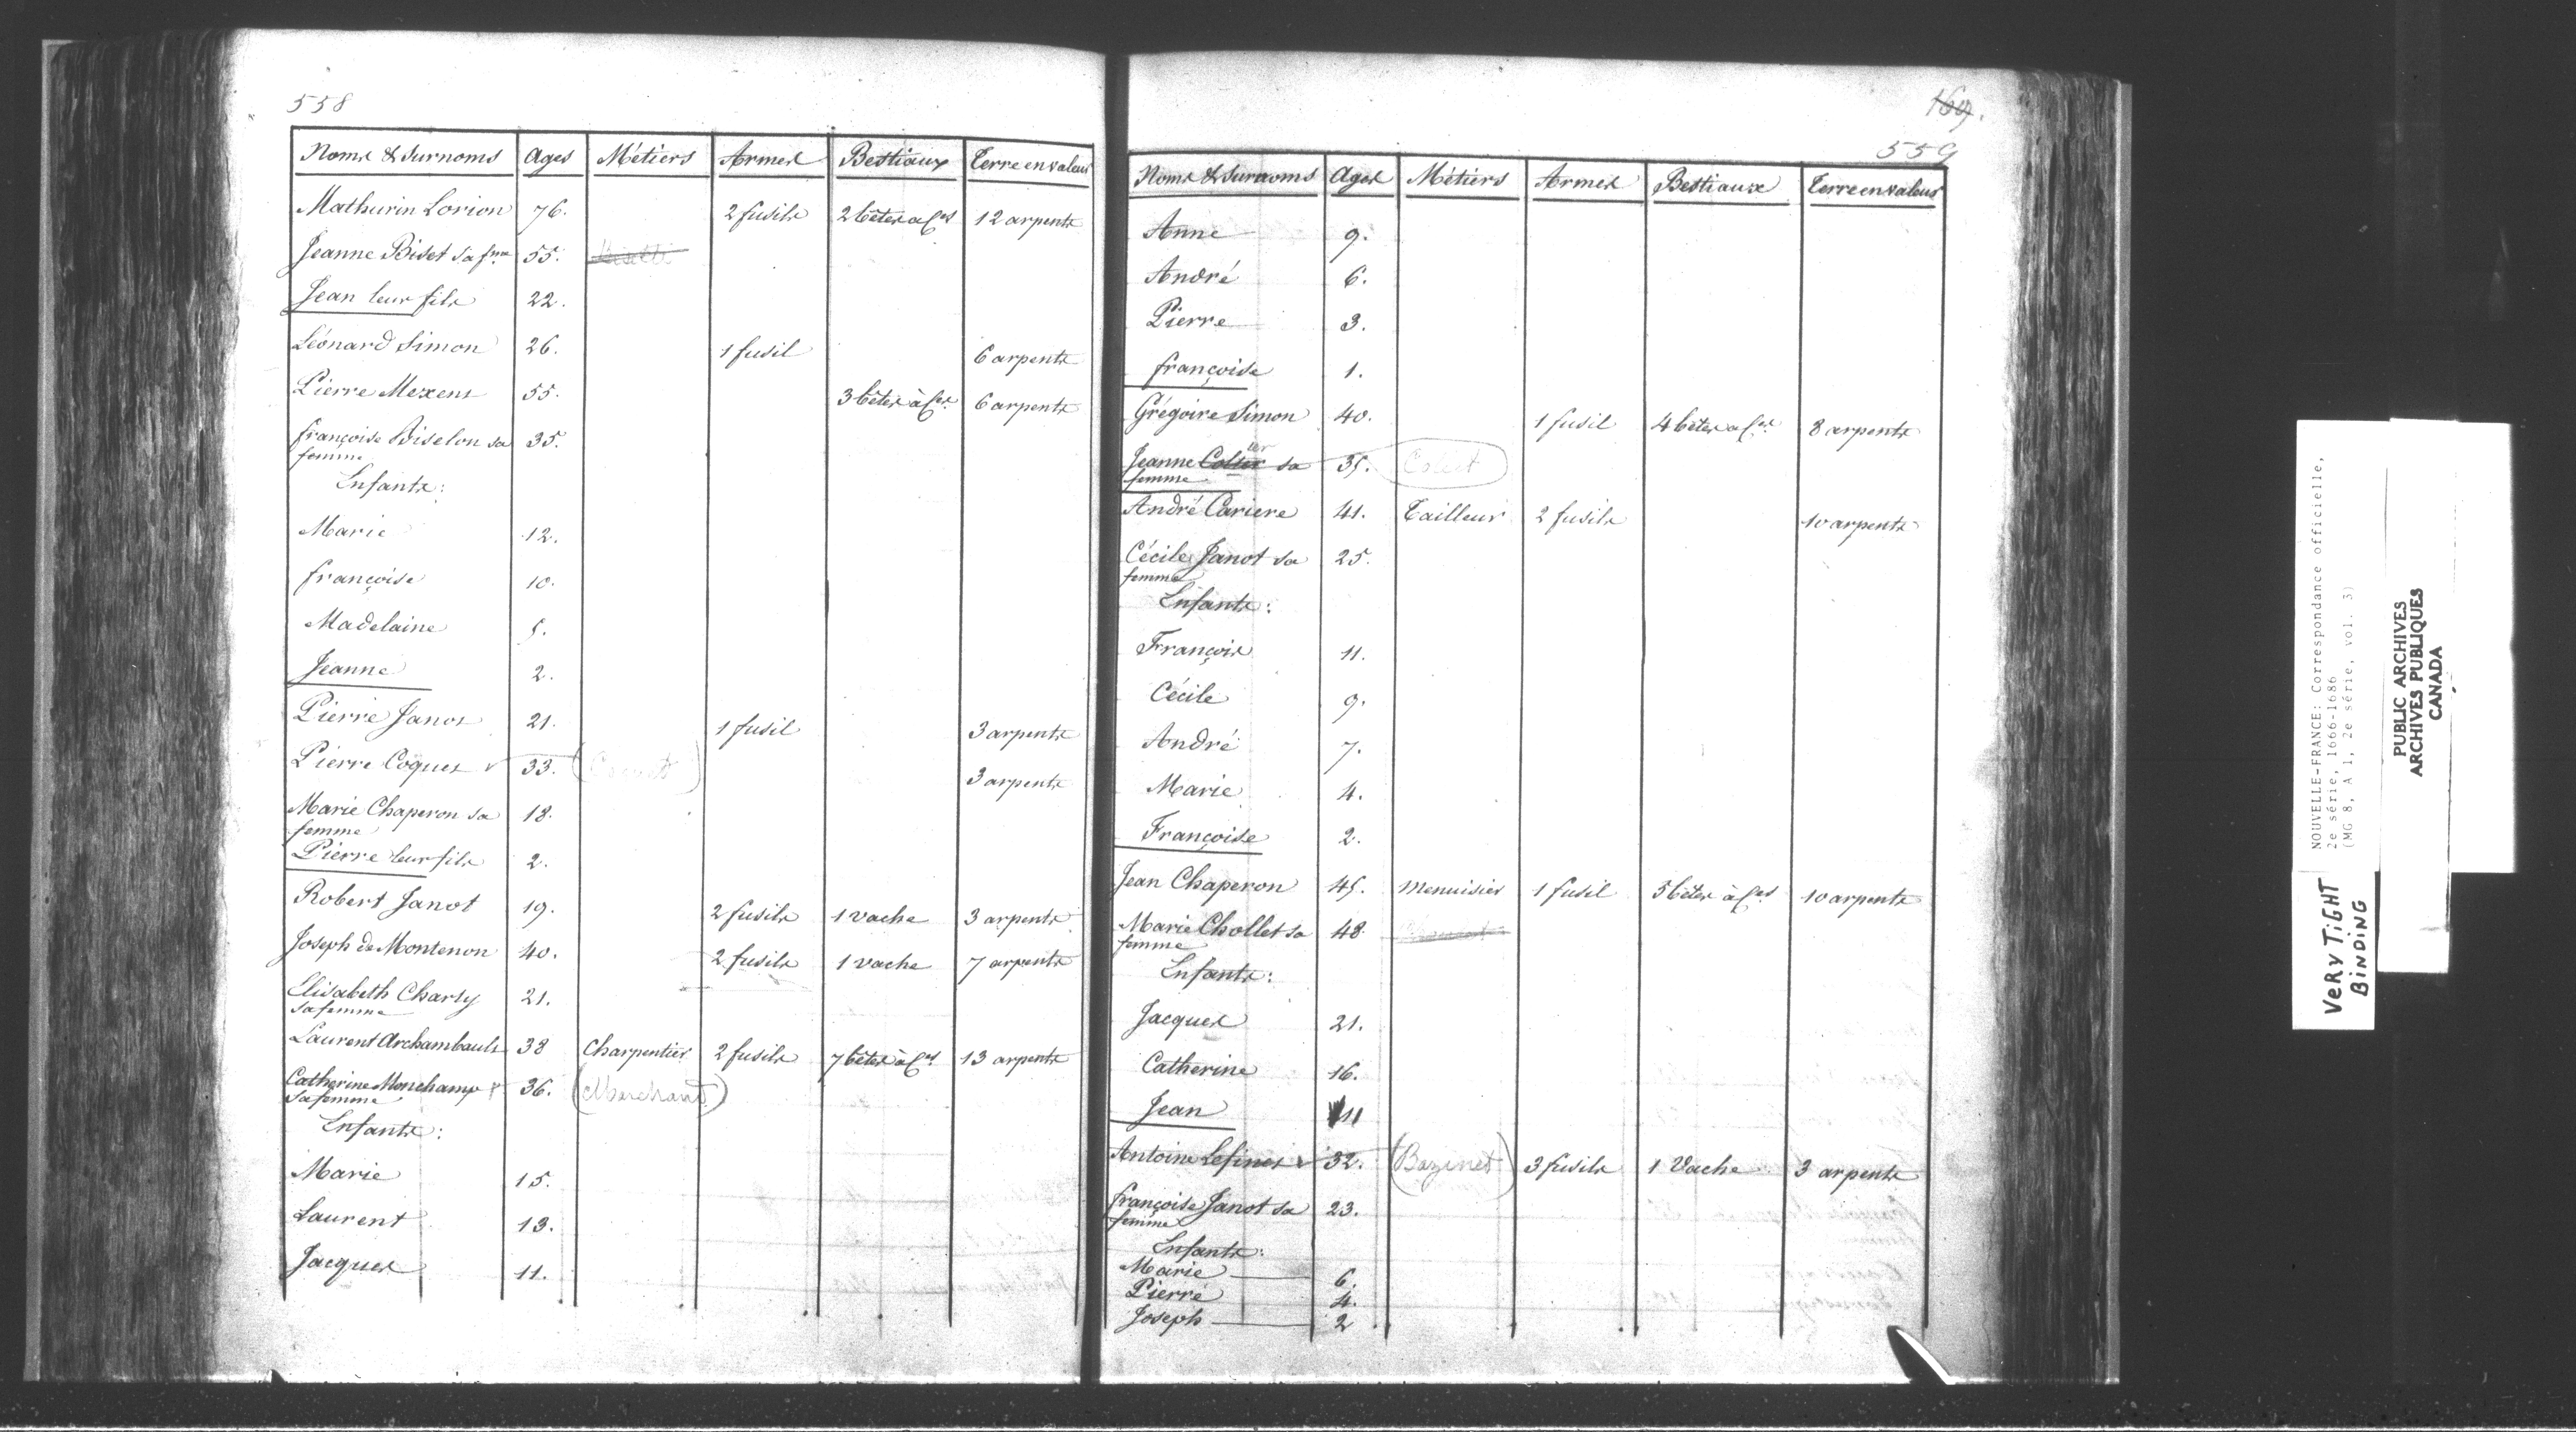 558
Noms & Surnoms Ages Métiers Armes Bestiaux Terre en valeur
Mathurin Lorion 76. 2 fusils 2 bêtes a Ces 12 arpents
Jeanne Biset sa fme 55.
Jean leur fils 22.
Léonard Simon 26. 1 fusil 6 arpents
Pierre Mexens 55. 3 bêtes à Ces 6 arpents
françoise Biselon sa 35.
femme
Enfants:
Marie 12.
françoise 10.
Madelaine 5.
Jeanne 2.
Pierre Janot 21. 1 fusil 3 arpents
Pierre Coques 33. 3 arpents
Marie Chaperon sa 18.
femme
Pierre leur fils 2.
Robert Janot 19. 2 fusils 1 vache 3 arpents
Joseph de Montenon 40. 2 fusils 1 vache 7 arpents
Elisabeth Charly 21.
sa femme
Laurent Archambault 38 Charpentier 2 fusils 7 bêtes à Ces 13 arpents
Catherine Monchamp 36. (Marchand)
sa femme
Enfants:
Marie 15.
Laurent 13.
Jacques 11.
169.
559
Noms & Surnoms Ages Métiers Armes Bestiaux Terre en valeur
Anne 9.
André 6.
Pierre 3.
françoise 1.
Grégoire Simon 40. 1 fusil 4 bêtes a Ces 8 arpents
Jeanne Colter sa 35.
femme
André Cariere 41. Tailleur 2 fusils 10 arpents
Cécile Janot sa 25.
femme
Enfants:
François 11.
Cécile 9.
André 7.
Marie 4.
Françoise 2.
Jean Chaperon 45. Menuisier 1 fusil 5 bêtes à Ces 10 arpents
Marie Chollet sa 48.
femme
Enfants:
Jacques 21.
Catherine 16.
Jean 11
Antoine Lefines 32. (Bazinet) 3 fusils 1 Vache 3 arpents
françoise Janot sa 23.
femme
Enfants:
Marie 6.
Pierre 4.
Joseph 2
NOUVELLE-FRANCE: Correspondance officielle,
2e série, 1666-1686
(MG 8, A 1, 2e série, vol. 3)
PUBLIC ARCHIVES
ARCHIVES PUBLIQUES
CANADA
VERY TIGHT
BINDING